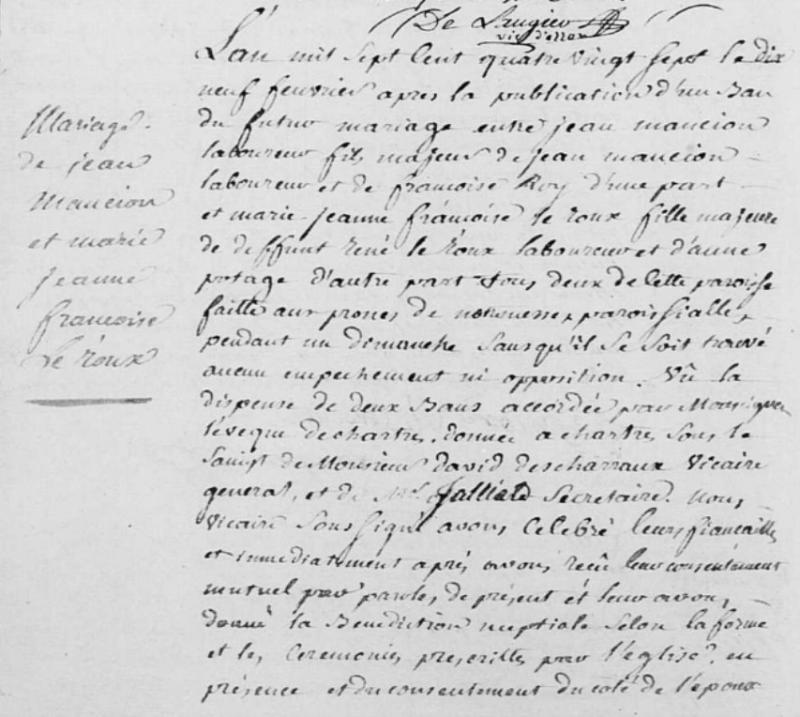 De Laugier
vic d'
L'an mil sept cent quatre vingt sept le dix
neuf feuvrier apres la publication d'un Ban
du futur mariage entre jean maucion
laboureur fils majeur de jean maucion
laboureur et de francoise Roy d'une part
et marie jeanne francoise le roux fille majeure
de deffunt rené le roux laboureur et d'anne
potage d'autre part tous deux de cette paroisse
faitte aux prones de nos messes paroissialles
pendant un dimanche sans qu'il se soit trouvé
aucun empechement ni opposition. Vû la
dispense de deux Bans accordée par Monseigneur
l'évêque de chartres, donnée a chartres sous le
Seing de Monsieur david descharraux Vicaire
general, et de Mr jalliard Secretaire. Nous,
Vicaire Soussigné avons Celebré leurs fiancailles
et immediatement après avons reçu leur consentement
mutuel par paroles de présent et leur avons
donné la Benediction nuptiale selon la forme
et les Ceremonies prescrittes par l'église, en
présence et du consentement du coté de l'epoux
Mariage
de jean
Maucion
et marie
jeanne
francoise
Le roux